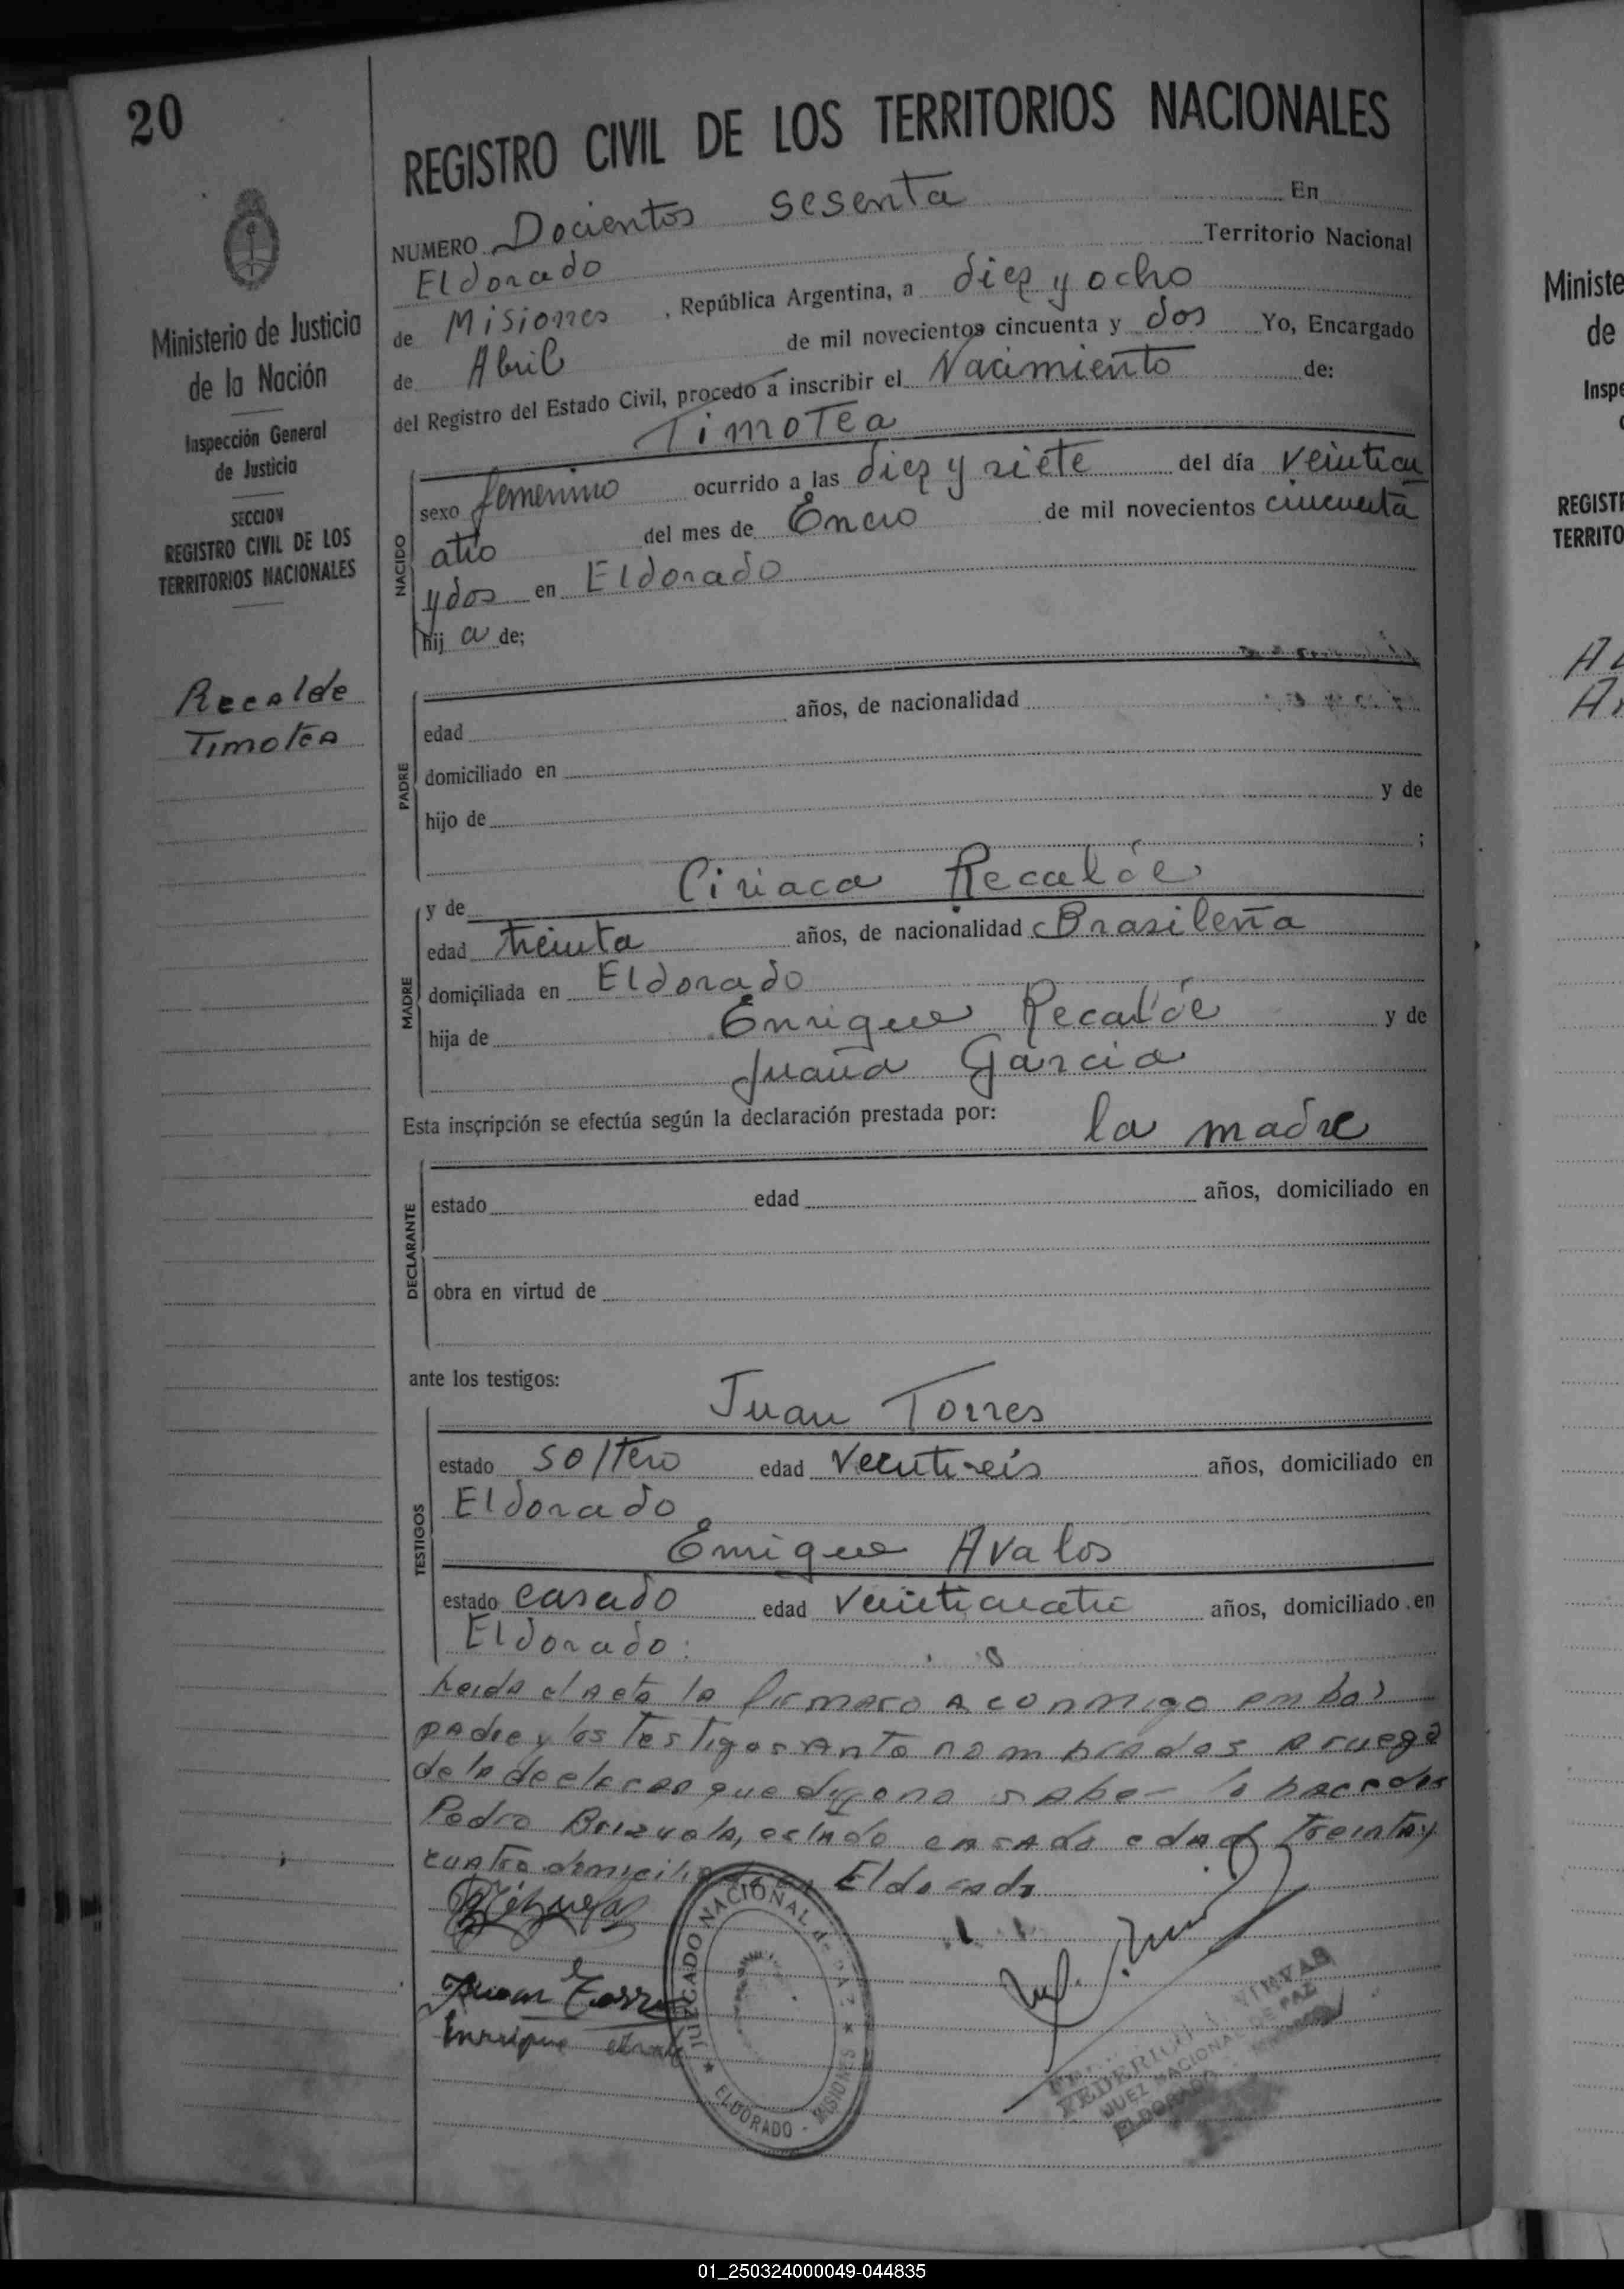 20
Ministerio de Justicia
de la Nación
Inspección General
de Justicia
SECCION
REGISTRO CIVIL DE LOS
TERRITORIOS NACIONALES
Recalde
Timotea
REGISTRO CIVIL DE LOS TERRITORIOS NACIONALES
NUMERO Docientos sesenta En
Eldorado Territorio Nacional
de Misiones, República Argentina, a diez y ocho
de Abril de mil novecientos cincuenta y dos Yo, Encargado
del Registro del Estado Civil, procedo a inscribir el Nacimiento de:
Timotea
NACIDO
sexo femenino ocurrido a las diez y siete del día veinticu
atro del mes de Enero de mil novecientos cincuenta
y dos en Eldorado
hij a de;
PADRE
edad años, de nacionalidad
domiciliado en
hijo de y de
;
MADRE
y de Ciriaca Recalde
edad treinta años, de nacionalidad Brasileña
domiciliada en Eldorado
hija de Enrique Recalde y de
Juana Garcia
Esta inscripción se efectúa según la declaración prestada por: la madre
DECLARANTE
estado edad años, domiciliado en
obra en virtud de
ante los testigos:
TESTIGOS
Juan Torres
estado soltero edad veintiseis años, domiciliado en
Eldorado
Enrique Avalos
estado casado edad veinticuatro años, domiciliado en
Eldorado.
Leida el acta la firmaro a conmigo ambos
padre y los testigos nombrados a ruego
de la que dijo no saber lo hace don
Pedro Brizuela, estado casado edad treinta y
cuatro Eldorado
Juan Torres
Enrique
JUZGADO NACIONAL de PAZ
ELDORADO - MISIONES
JUEZ NACIONAL DE PAZ
ELDORADO
Ministe
de
Inspe
REGIST
TERRITO
01_250324000049-044835